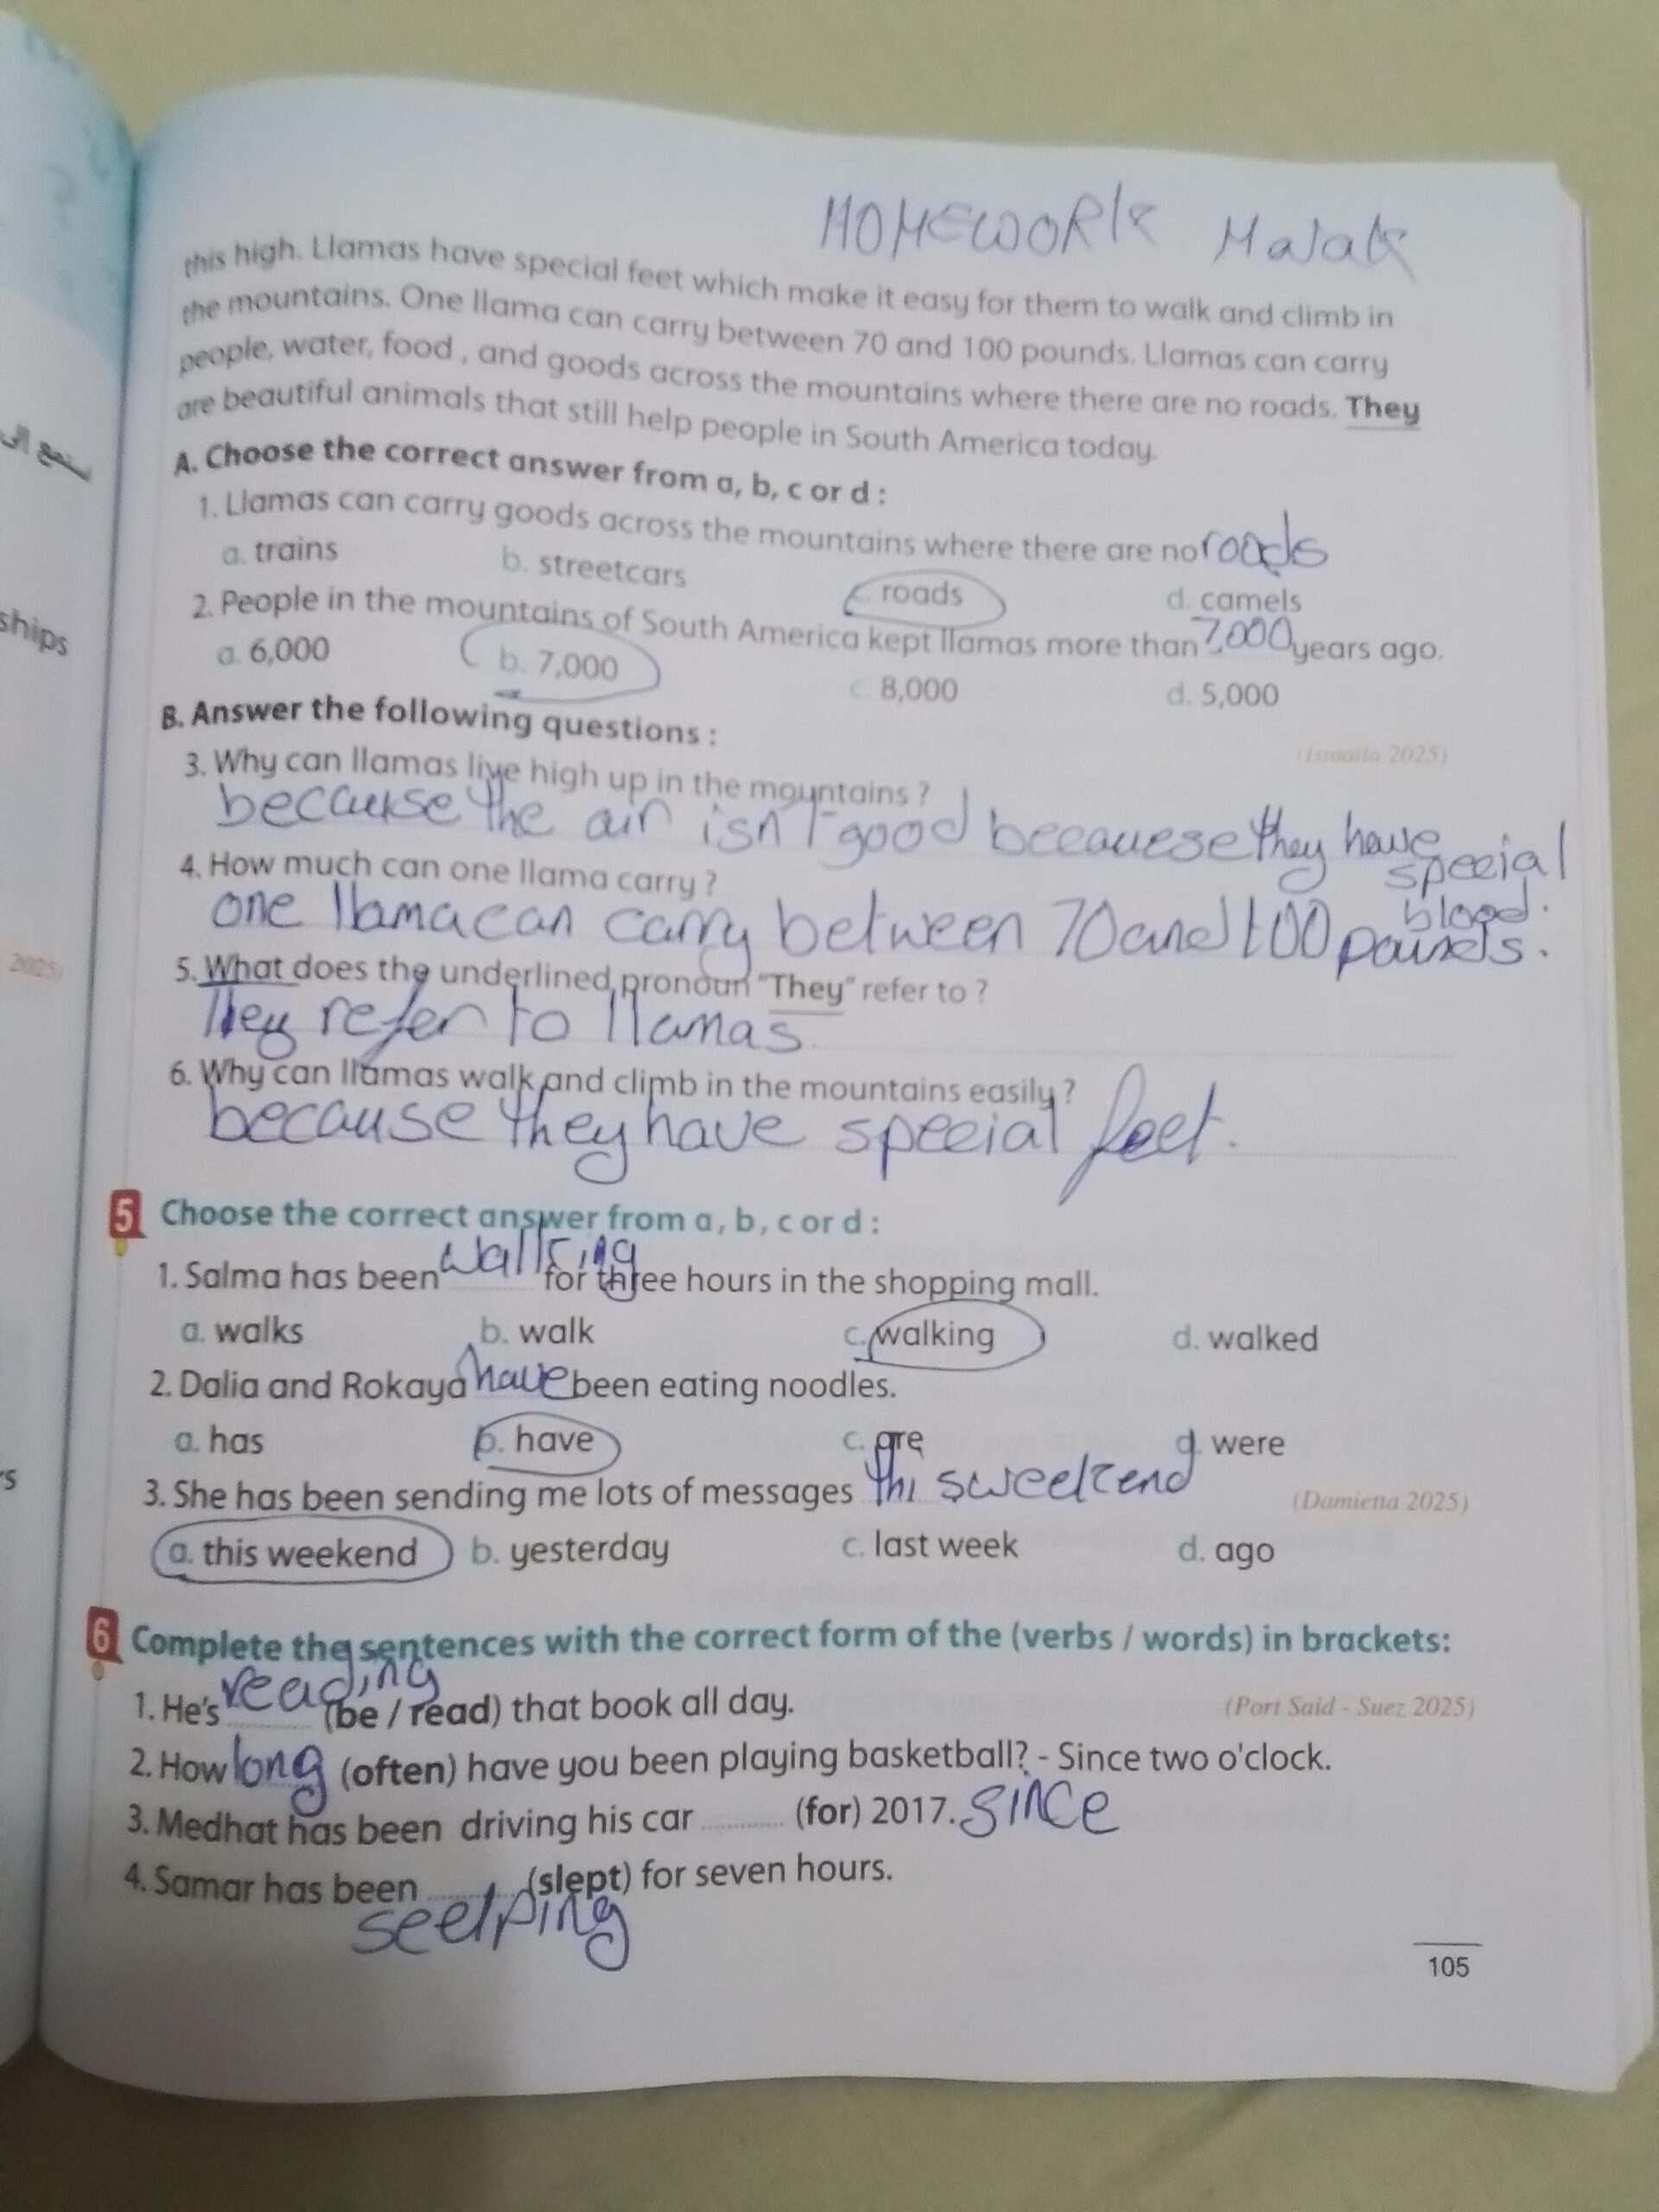 HOMEWORK Malak
this high. Llamas have special feet which make it easy for them to walk and climb in
the mountains. One llama can carry between 70 and 100 pounds. Llamas can carry
people, water, food , and goods across the mountains where there are no roads. They
are beautiful animals that still help people in South America today.
A. Choose the correct answer from a, b, c or d :
1. Llamas can carry goods across the mountains where there are no roads
a. trains b. streetcars c. roads d. camels
2. People in the mountains of South America kept llamas more than 7,000 years ago.
a. 6,000 b. 7,000 c. 8,000 d. 5,000
B. Answer the following questions :
(Ismailia 2025)
3. Why can llamas live high up in the mountains ?
because the air isn't good becauese they have
special
blood.
4. How much can one llama carry ?
one llama can carry between 70 and 100 pounds.
5. What does the underlined pronoun "They" refer to ?
They refer to llamas
6. Why can llamas walk and climb in the mountains easily ?
because they have special feet.
5 Choose the correct answer from a , b , c or d :
1. Salma has been walking for three hours in the shopping mall.
a. walks b. walk c. walking d. walked
2. Dalia and Rokaya have been eating noodles.
a. has b. have c. are d. were
3. She has been sending me lots of messages this weekend (Damietta 2025)
a. this weekend b. yesterday c. last week d. ago
6 Complete the sentences with the correct form of the (verbs / words) in brackets:
1. He's reading (be / read) that book all day. (Port Said - Suez 2025)
2. How long (often) have you been playing basketball? - Since two o'clock.
3. Medhat has been driving his car ........ (for) 2017. since
4. Samar has been ........ (slept) for seven hours.
seelping
105
ships
2025)